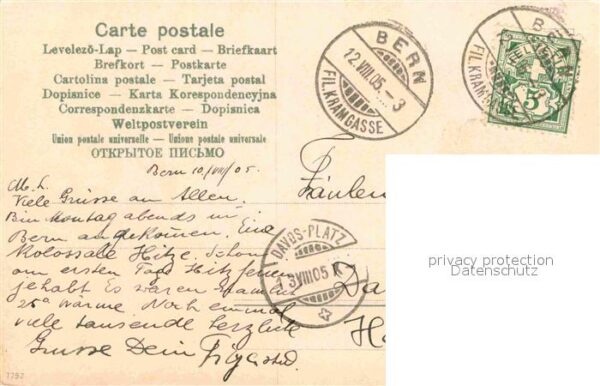 Carte postale
Levelező-Lap — Post card — Briefkaart
Brefkort — Postkarte
Cartolina postale — Tarjeta postal
Dopisnice — Karta Korespondencyjna
Correspondenzkarte — Dopisnica
Weltpostverein
Union postale universelle — Unione postale universale
ОТКРЫТОЕ ПИСЬМО
BERN
12.VIII.05. – 3
FIL. KRAMGASSE
BERN
FIL. KRAM
HELVETIA
5
Bern 10/VIII/05.
M. L.
Viele Grüsse an Allen.
Bin Montag abends in
Bern angekommen. Eine
Kolossale Hitze. Schon
am ersten Tag Hitzferien
gehabt. Es waren
25° Wärme. Noch einmal
viele tausende herzliche
Grüsse Dein
Fräulein
DAVOS-PLATZ
13VIII05
Da
H
privacy protection
Datenschutz
7792